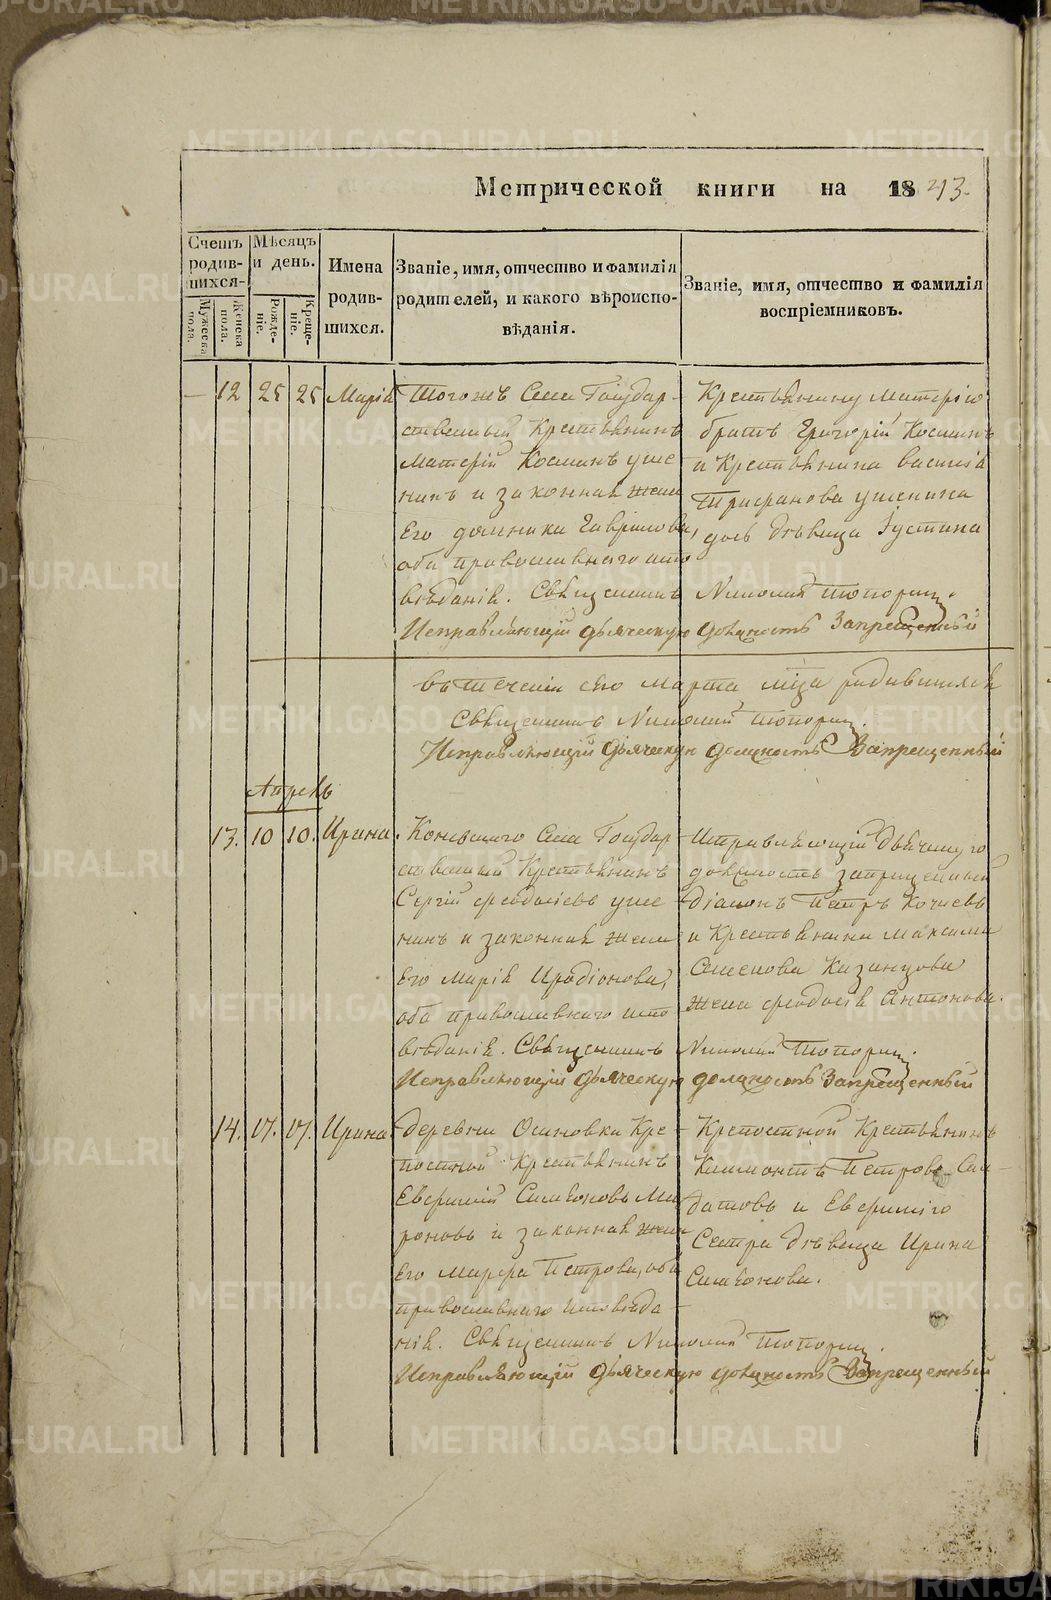 Метрической книги на 1843.
Счетъ родив-шихся
Мѣсяцъ и день.
Имена родив-шихся.
Званіе, имя, отчество и фамилія родителей, и какого вѣроиспо-вѣданія.
Званіе, имя, отчество и фамилія воспріемниковъ.
Мужеска пола.
Женска пола.
Рожде-ніе.
Креще-ніе.
— 12 25 25 Марія
Тогожъ Села Государ-
ственный Крестьянинъ
Матерій Косминъ уше
нинъ и законная жена
Его домника Гаврилова,
оба православнаго испо
вѣданія. Священникъ Николай Топорко.
Исправляющій дьяческую должность Запрещенный
Крестьянину Матерію
братъ Григорій Косминъ
и Крестьянина василія
Трифанова ушенина
дочь дѣвица Іустина
въ теченіи сего марта мца родившихся
Священникъ Николай
Исправляющій дьяческую должность Запрещенный
Апрель
13. 10 10. Ирина.
Коневскаго Села Государ
ственный Крестьянинъ
Сергій феодосіевъ уше
нинъ и законная жена
Его Марія Иродіонова,
оба православнаго испо
вѣданія. Священникъ Николай
Исправляющій дьяческую должность Запрещенный
Исправляющій дьяческую
должность запрещенный
діаконъ Петръ
и Крестьянина Максима
Семенова Казанцова
жена феодосія Антонова.
14. 17. 17. Ирина
деревни Осиновки Кре-
постной Крестьянинъ
Евфимій Симеоновъ Ми
роновъ и законная жена
Его Марфа Петрова, оба
православнаго исповѣда-
нія. Священникъ Николай
Исправляющій дьяческую должность Запрещенный
Крепостной Крестьянинъ
Климонтъ Петровъ Сал-
датовъ и Евфиміго
Сестра дѣвица Ирина
Симеонова.
METRIKI.GASO-URAL.RU